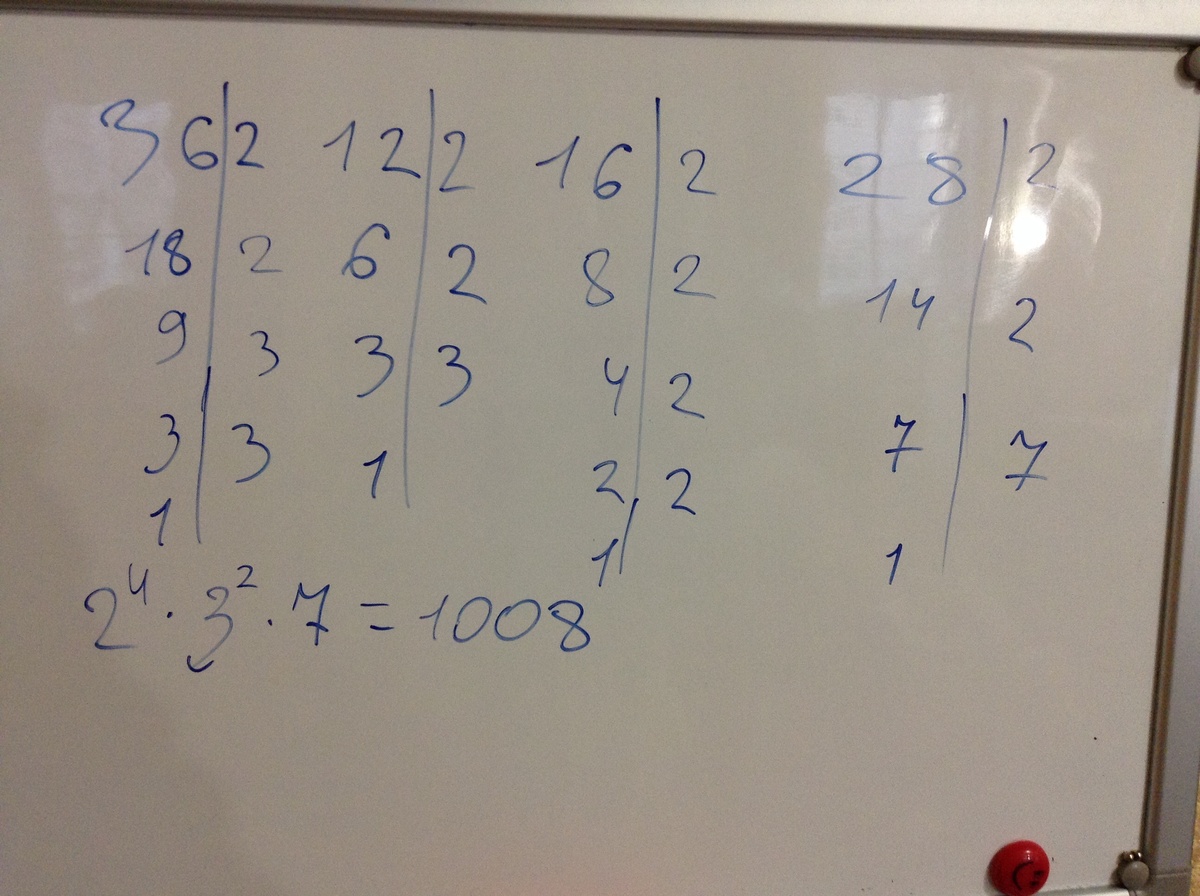 36|2 12|2 16|2 28|2
18|2 6|2 8|2 14|2
9|3 3|3 4|2 7|7
3|3 1| 2|2 1|
1| 1|
2⁴ · 3² · 7 = 1008